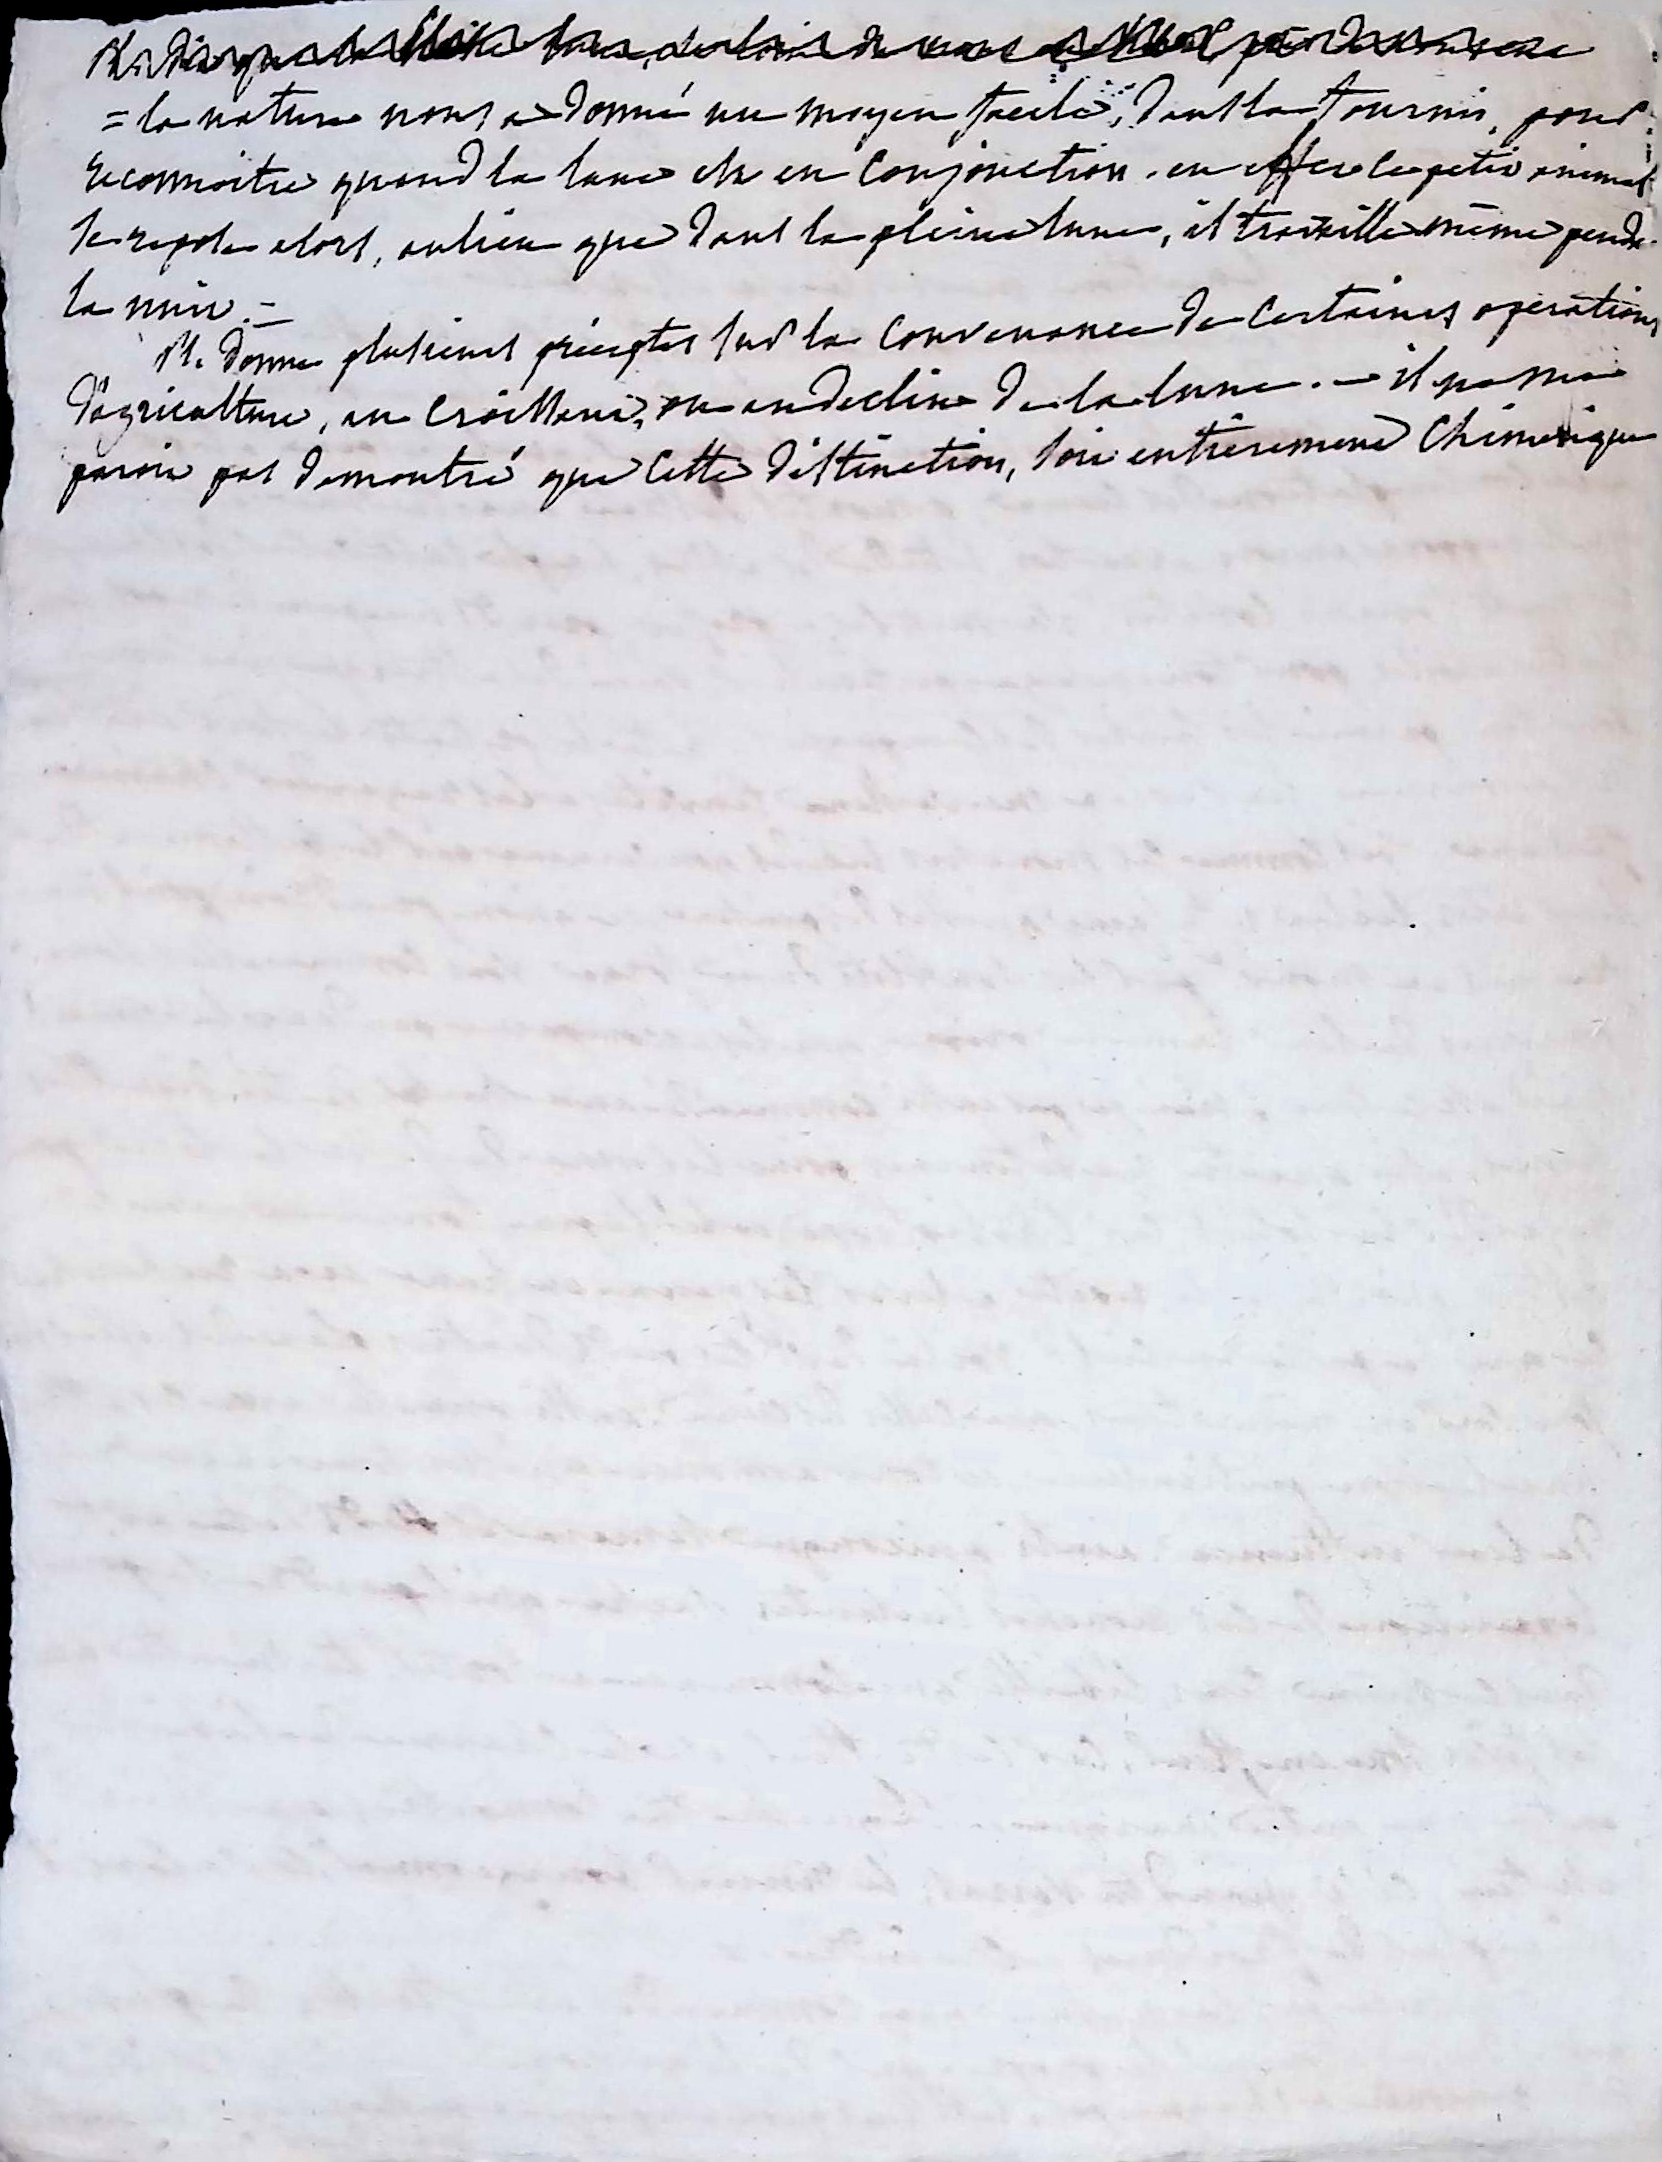 = la nature nous a donné un moyen facile, dans la fourmi, pour
reconnoitre quand la lune est en Conjonction. en effet ce petit animal
se repose alors, au lieu que dans la pleine lune, il travaille même pendt
la nuit. =
Pl. donne plusieurs préceptes sur la Convenance de Certaines operations
d'agriculture, au Croissant, ou au declin de la lune. - il ne me
paroit pas demontré que Cette distinction, soit entierement Chimerique